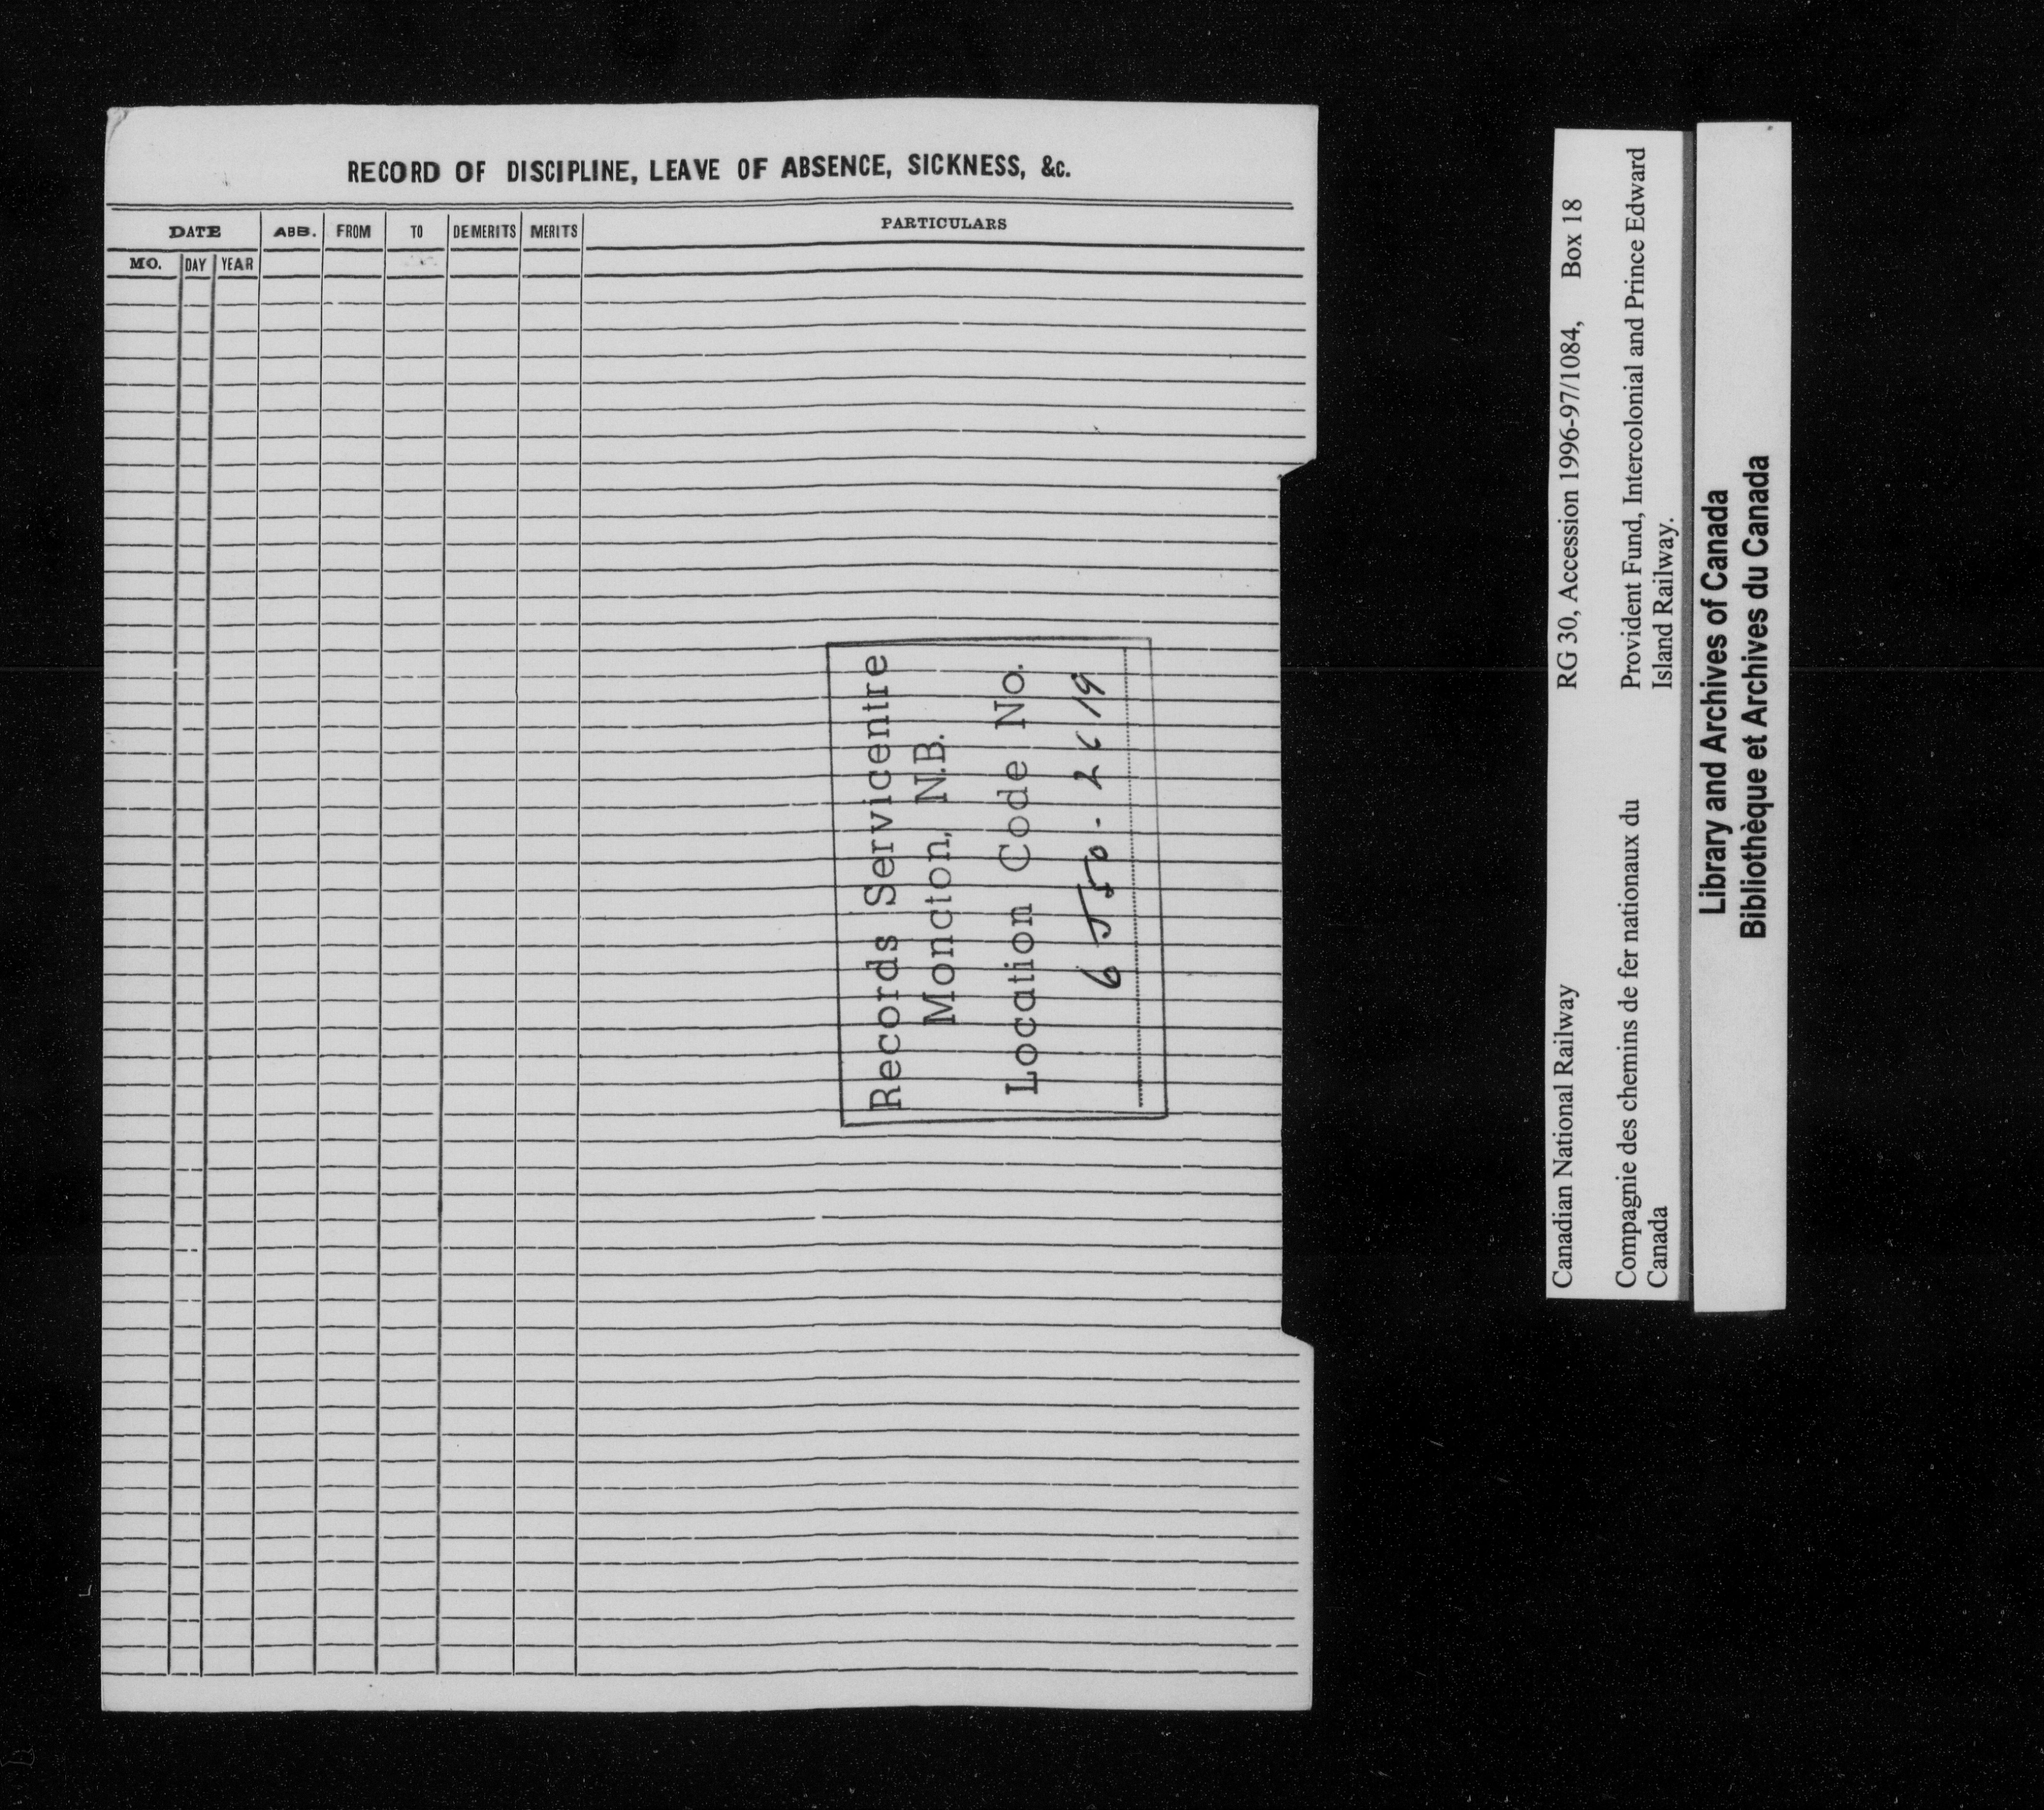 RECORD OF DISCIPLINE, LEAVE OF ABSENCE, SICKNESS, &c.
DATE ABB. FROM TO DEMERITS MERITS PARTICULARS
MO. DAY YEAR
Records Servicentre
Moncton, N.B.
Location Code No.
6550-2619
Canadian National Railway RG 30, Accession 1996-97/1084, Box 18
Compagnie des chemins de fer nationaux du Provident Fund, Intercolonial and Prince Edward
Canada Island Railway.
Library and Archives of Canada
Bibliothèque et Archives du Canada